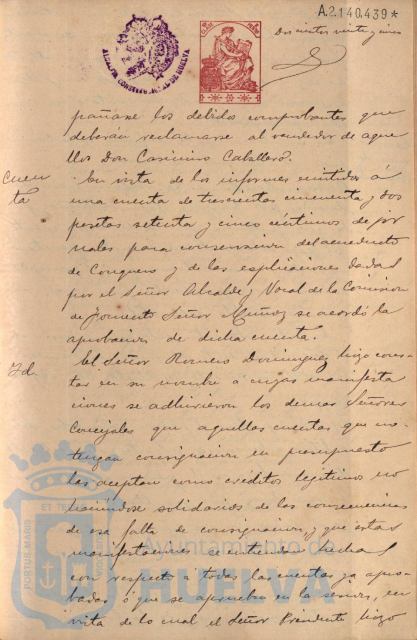 A.2.140.439*
Doscientos veinte y cinco
ALCALDIA CONSTITUCIONAL DE HUELVA
pañarse los debidos comprobantes que
deberán reclamarse al vendedor de aque
llos Don Casimiro Caballero.
Cuen
ta
En vista de los informes emitidos á
una cuenta de trescientas cincuenta y dos
pesetas setenta y cinco céntimos de jor
nales para conservacion del acueducto
de Conquero y de las esplicaciones dadas
por el Señor Alcalde y Vocal de la Comision
de Fomento Señor Muñoz se acordó la
aprobacion de dicha cuenta.
Id.
El Señor Romero Dominguez hizo cons
tar en su nombre á cuyas manifesta
ciones se adhirieron los demas Señores
Concejales que aquellas cuentas que no
tengan consignacion en presupuesto
las aceptan como créditos legítimos no
haciéndose solidarios de las consecuencias
de esa falta de consignacion, y que estas
manifestaciones se entiendan hechas
con respecto á todas las cuentas ya apro
badas ó que se aprueben en la sesion, en
vista de lo cual el Señor Presidente hizo
PORTUS MARIS
ET TE
Ayuntamiento de
HUELVA